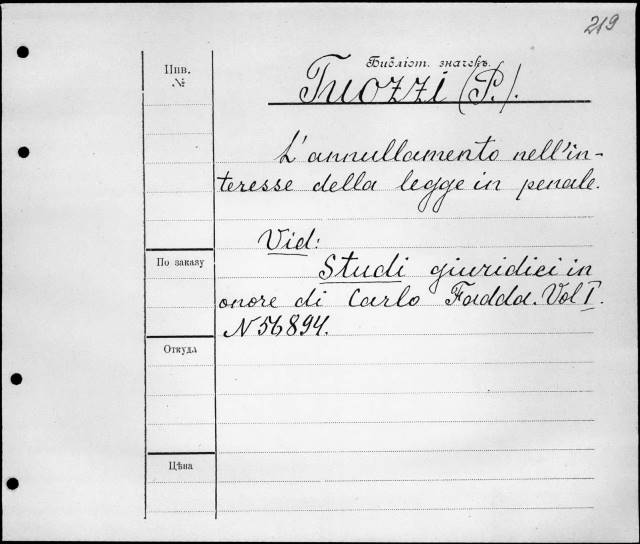 219
Инв.
№
Библіот. значекъ.
Tuozzi (P.).
L'annullamento nell'in-
teresse della legge in penale.
Vid:
По заказу
Studi giuridici in
onore di Carlo Fadda. Vol I.
N 56894.
Откуда
Цѣна